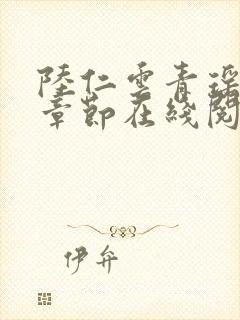 陸仁雲青瑶
章節在綫閱
伊弁